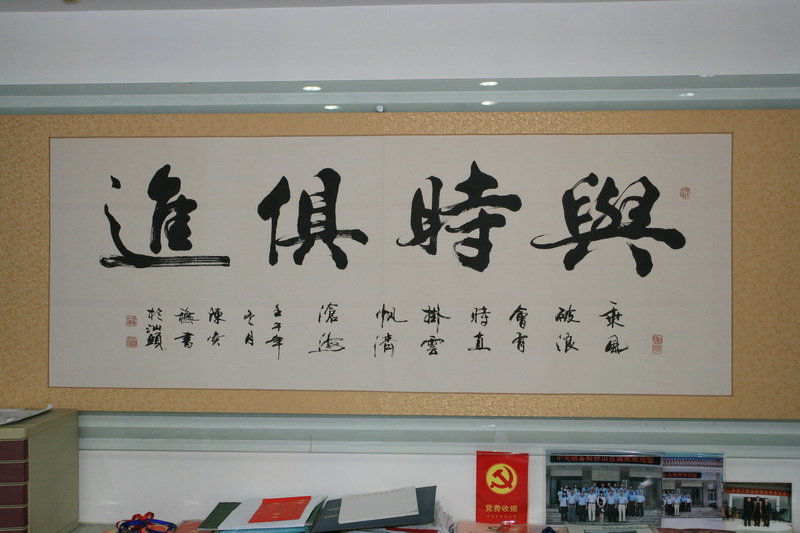 與時俱進
乘風
破浪
會有
時直
掛雲
帆濟
滄海
壬午年
冬月
書
於汕頭
党费收据